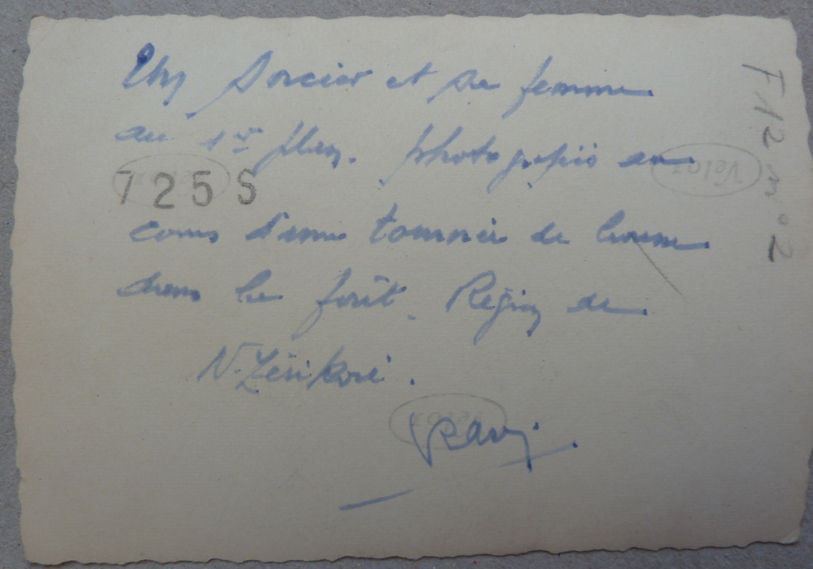 Un Sorcier et sa femme
au 1er plan. photographié au
7255
cours d'une tournée de
dans la forêt. Région de
N'Zérékoré.
F12 n°2
Velox
Velox